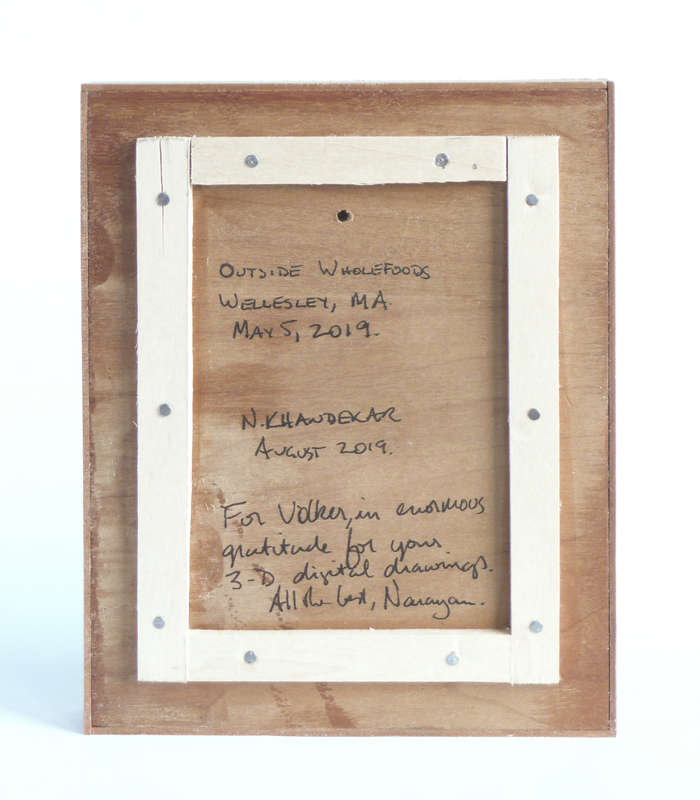 OUTSIDE WHOLEFOODS
WELLESLEY, MA
MAY 5, 2019.
N. KHANDEKAR
AUGUST 2019.
For Volker, in enormous
gratitude for your
3-D digital drawings.
All the best, Narayan.